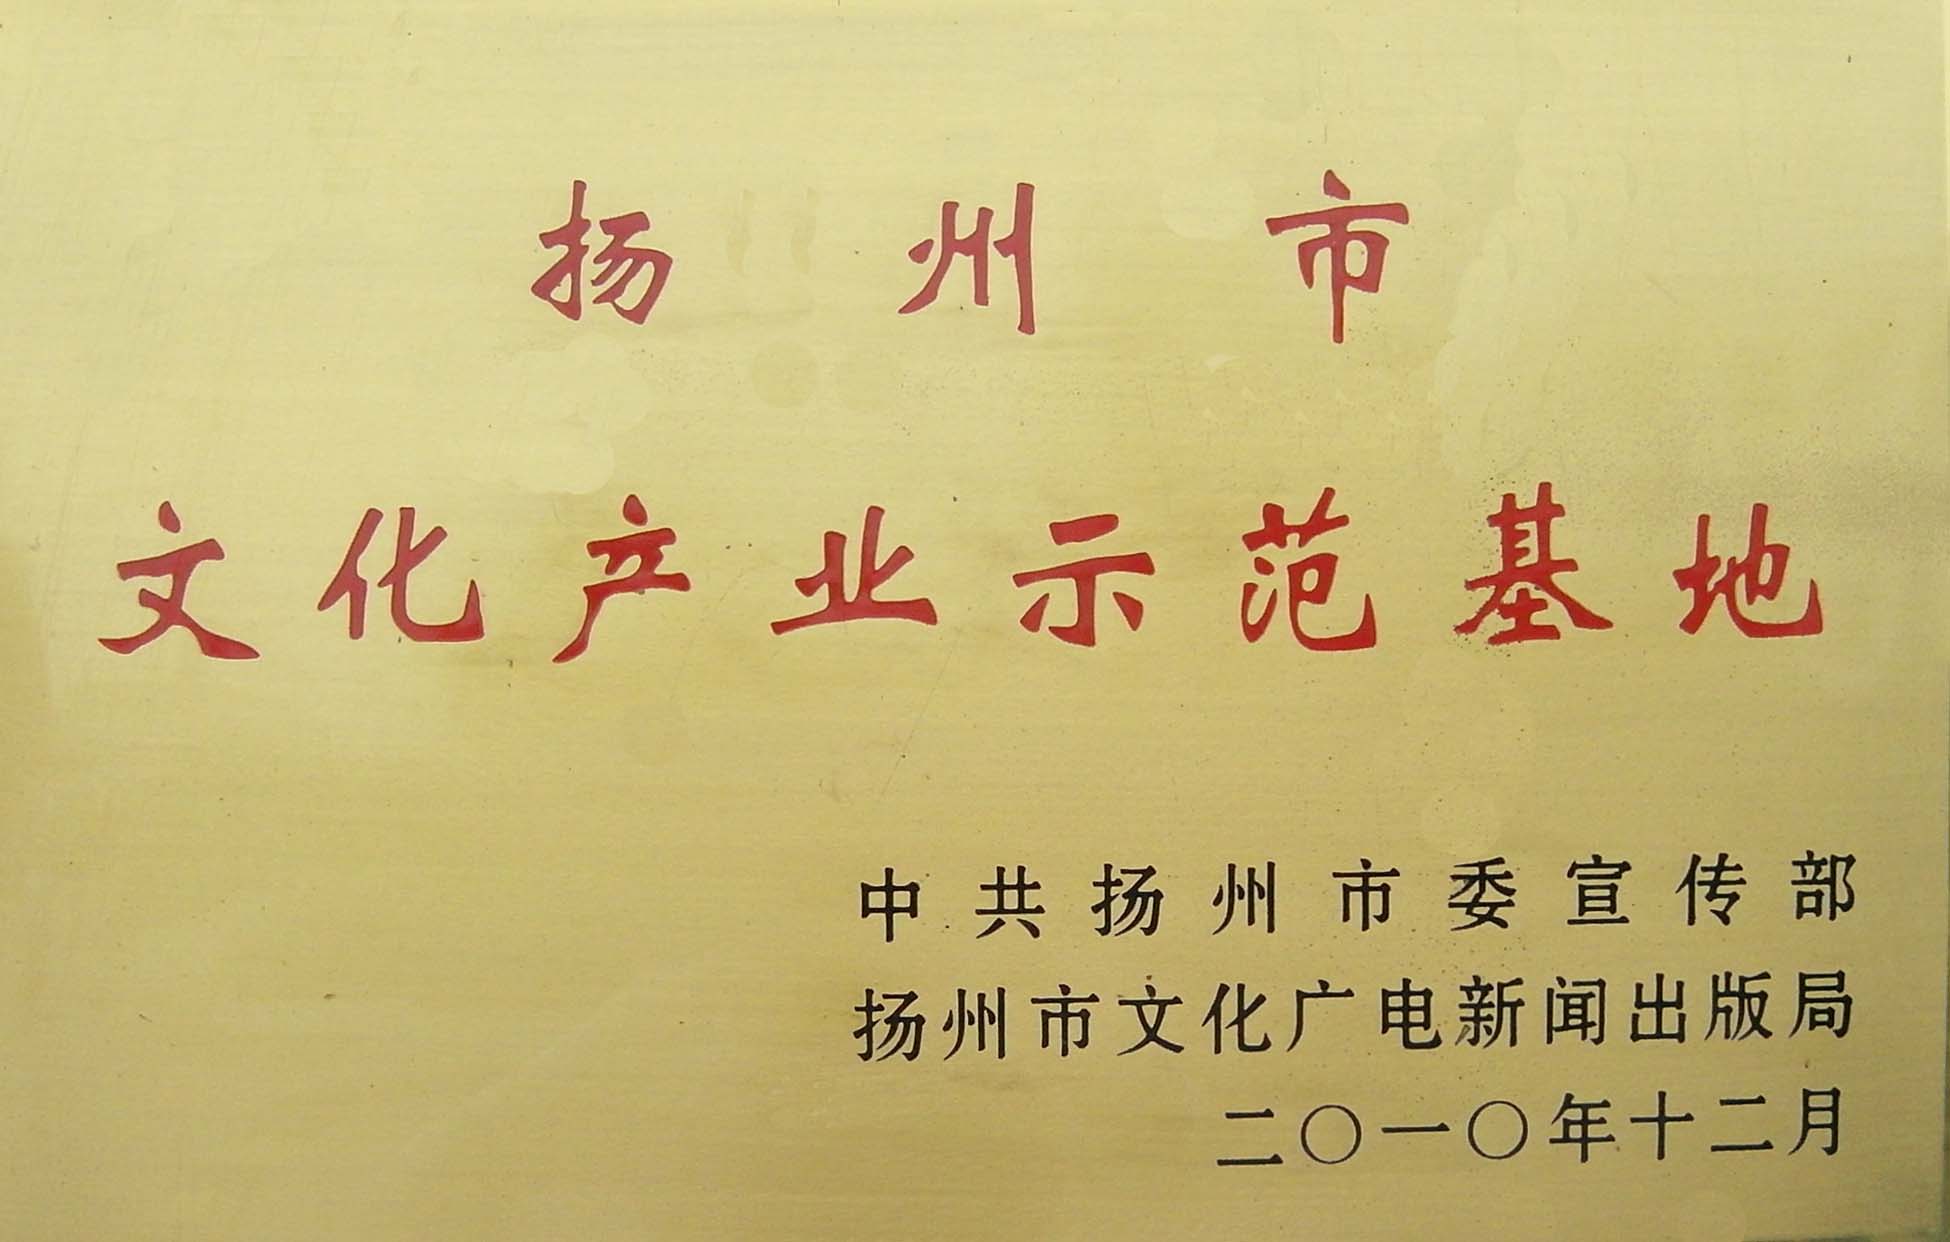 扬州市
文化产业示范基地
中共扬州市委宣传部
扬州市文化广电新闻出版局
二〇一〇年十二月